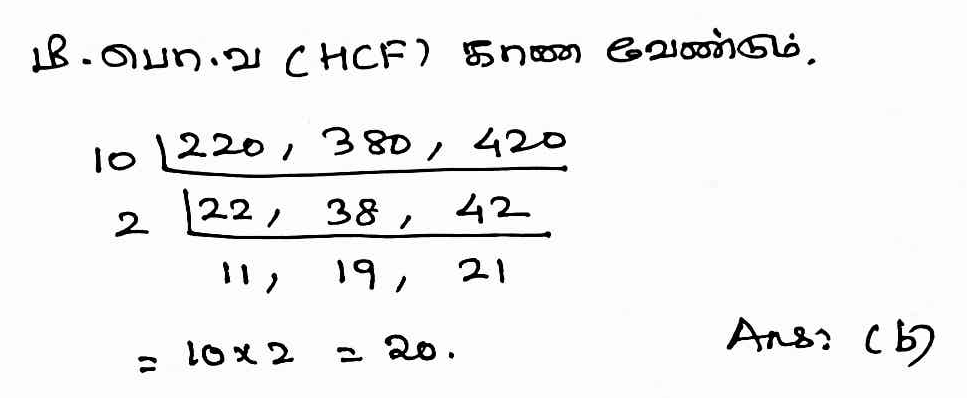 மீ.பொ.வ (HCF) காண வேண்டும்.
10 220, 380, 420
2 22, 38, 42
11, 19, 21
= 10 x 2 = 20.
Ans: (b)